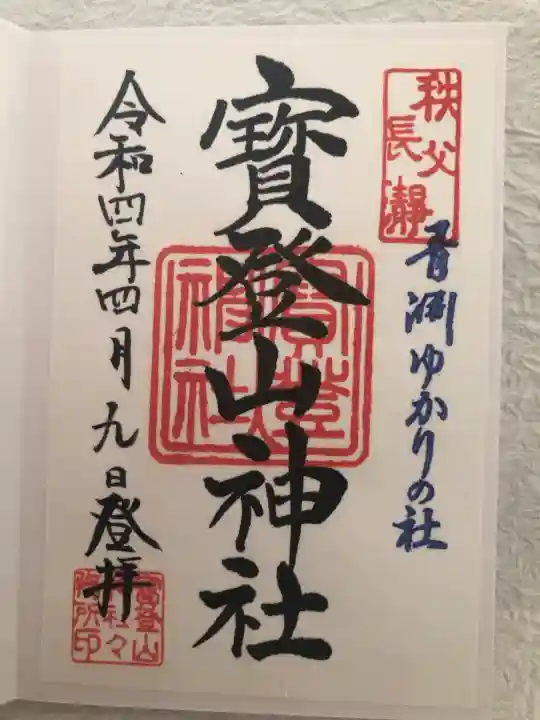 秩父
長瀞
青淵ゆかりの社
寳登山神社
寳登山神社
令和四年四月九日登拝
寳登山
神社々
務所印